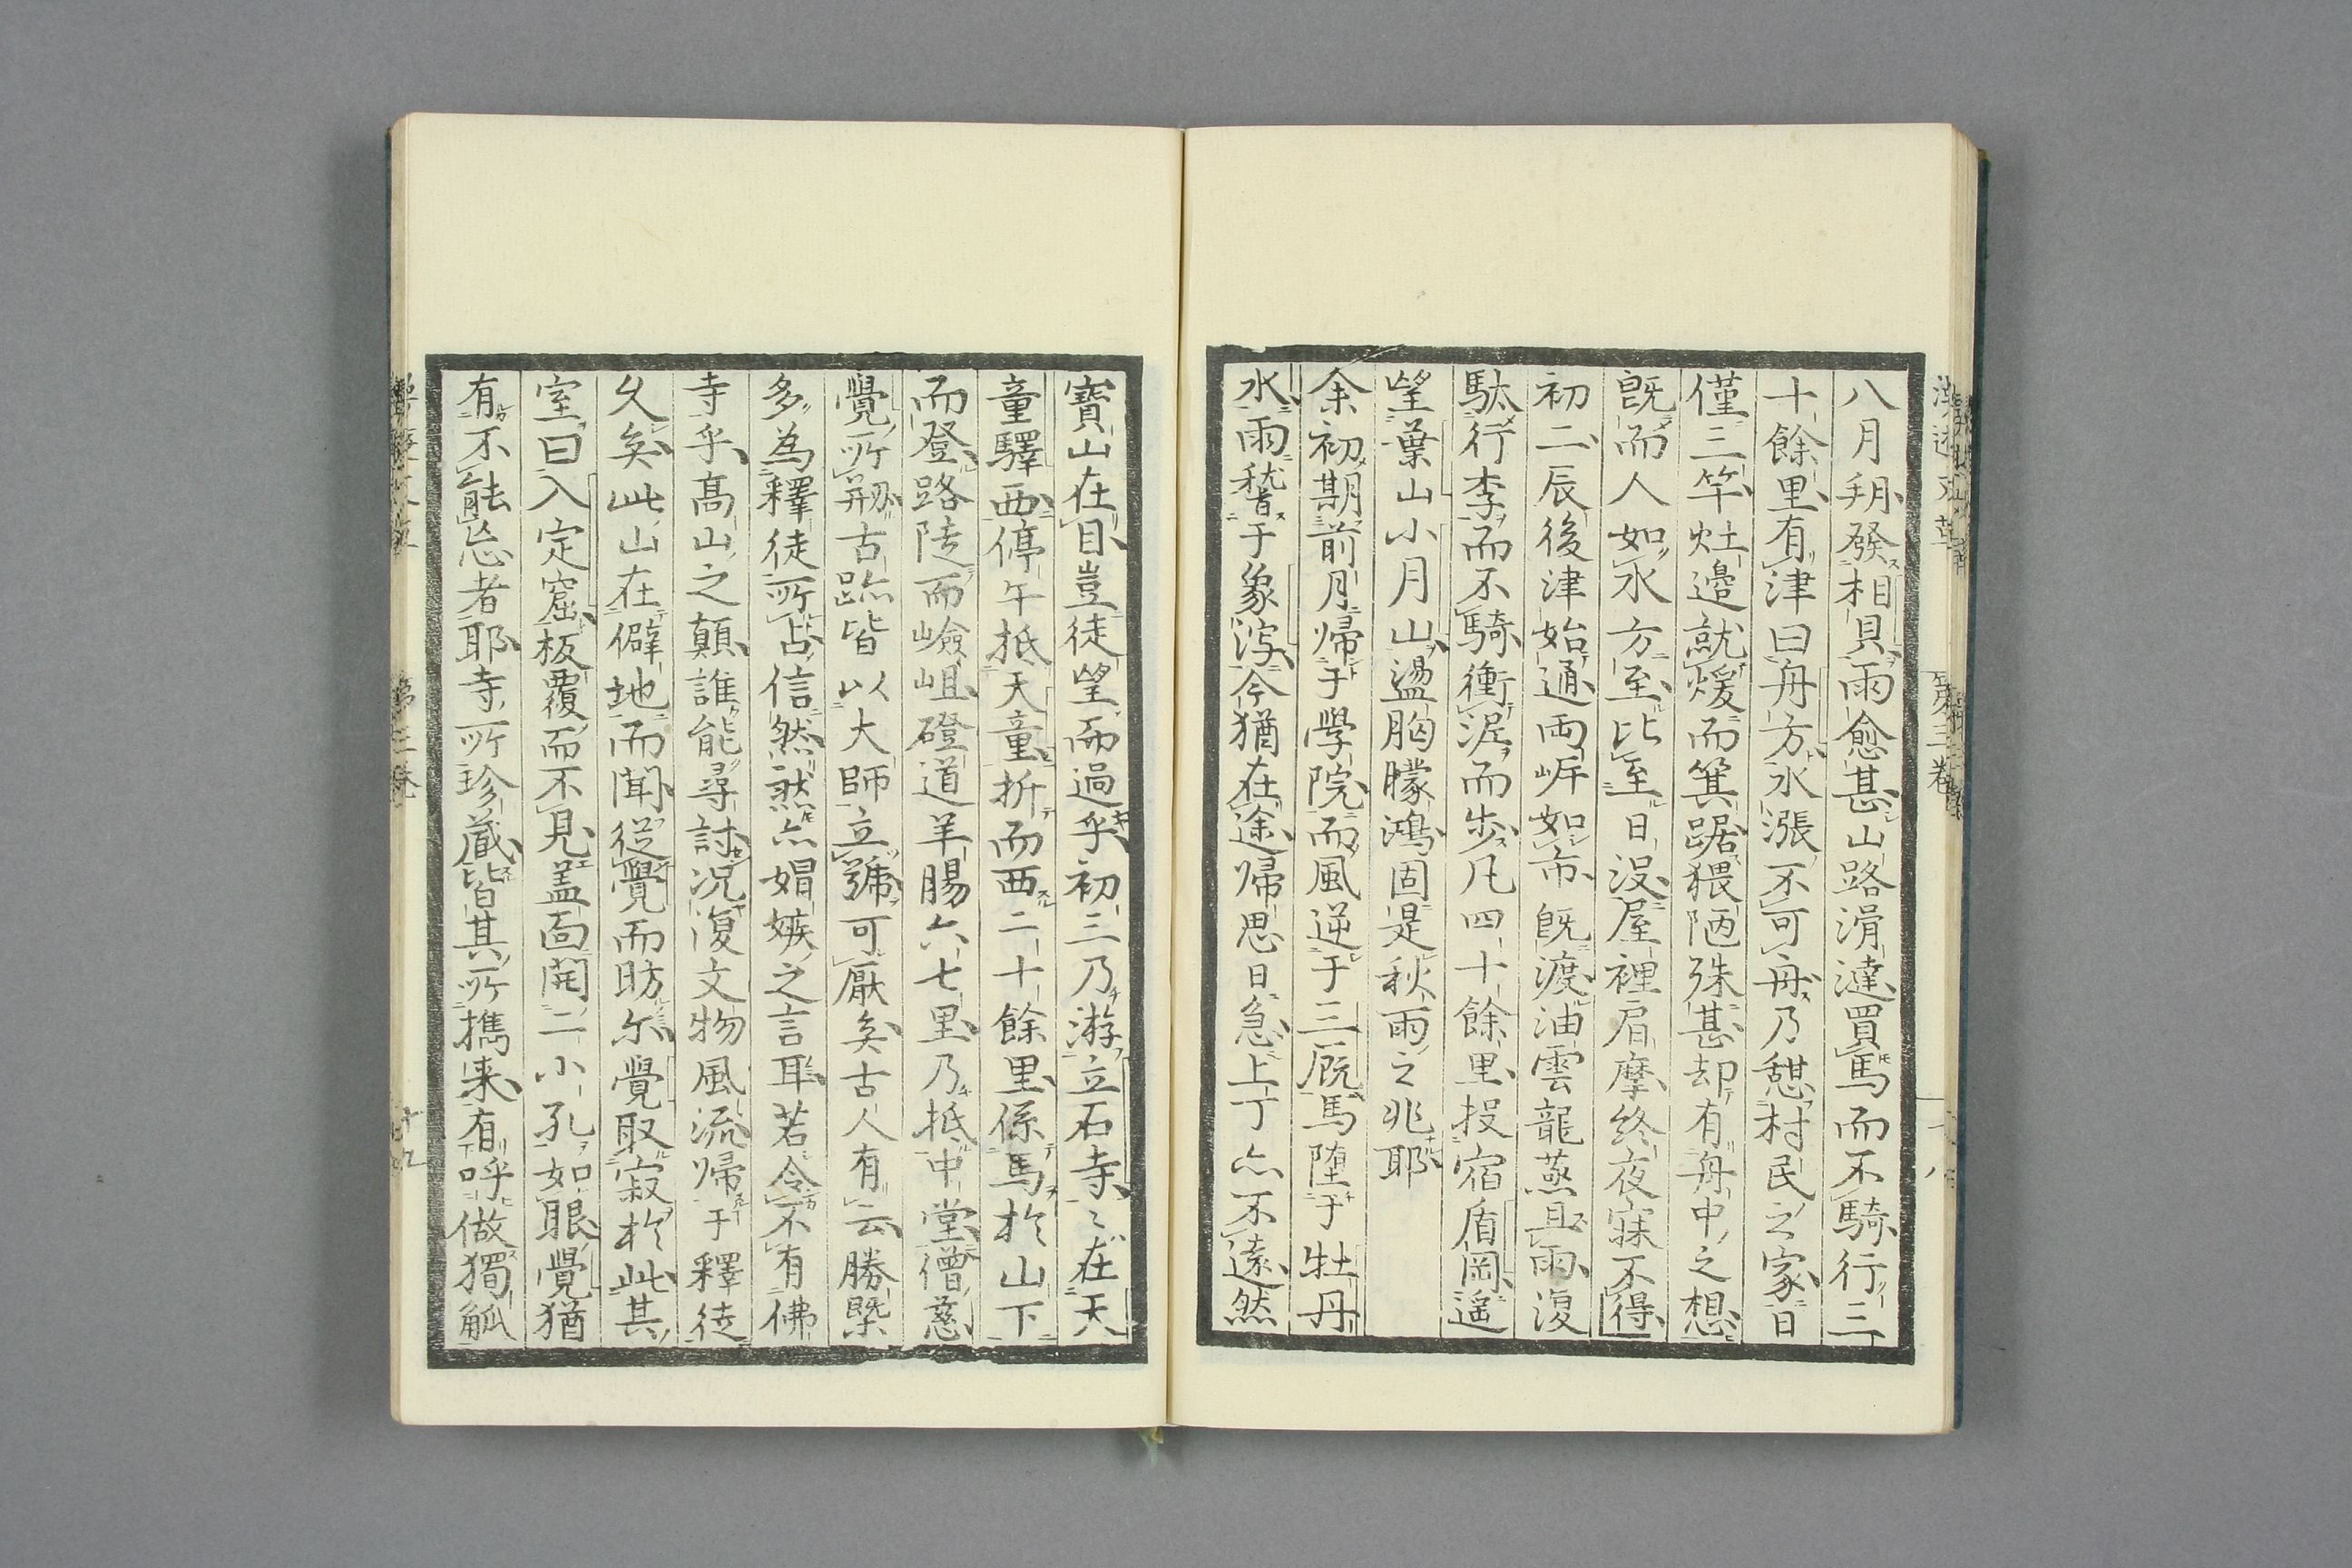 八月朔發相貝雨愈甚山路滑澾買馬而不騎行三
十餘里有津曰舟方水漲不可舟乃憇村民之家日
僅三竿灶邉就煖而箕踞猥陋殊甚却有舟中之想
旣而人如水方至比至日没屋裡肩摩終夜寐不得
初二辰後津始通両岸如市旣渡油雲龍蒸且雨復
駄行李而不騎衝泥而步凡四十餘里投宿盾岡遥
望葉山小月山盪胸朦鴻固是秋雨之兆耶
余初期前月帰于學院而風逆于三厩馬堕于牡丹
水雨稽于象瀉今猶在途帰思日急上丁亦不遠然
寳山在目豈徒望而過乎初三乃游立石寺〻在天
童驛西停午抵天童折而西二十餘里係馬於山下
而登路陡而嶮岨磴道羊腸六七里乃抵中堂僧慈
覺所剏古跡皆以大師立號可厭矣古人有云勝槩
多為釋徒所占信然然亦娼嫉之言耳若令不有佛
寺乎髙山之顛誰能尋討况復文物風流帰于釋徒
久矣此山在僻地而聞從覺而昉尓覺取寂於此其
室曰入定窟板覆而不見盖面開二小孔如眼覺猶
有不能忘者耶寺所珍蔵皆其所擕来有呼做獨觚
第三卷